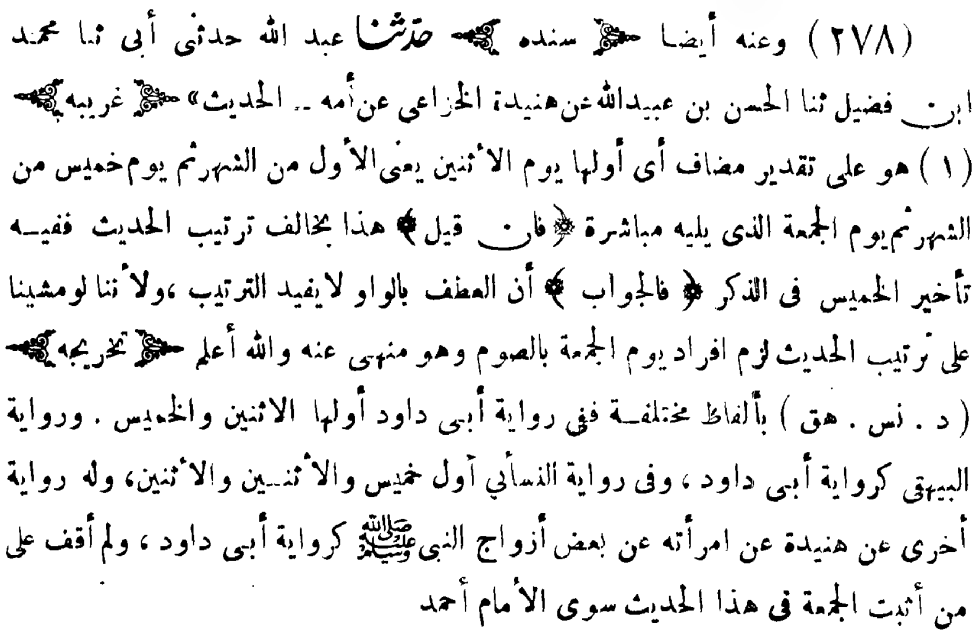 (٢٧٨) وعنه أيضا ﴿ سنده ﴾ حدثنا عبد الله حدثنى أبى ثنا محمد
ابن فضيل ثنا الحسن بن عبيدالله عن هنيدة الخزاعى عن أمه .. الحديث» ﴿ غريبه ﴾
(١) هو على تقدير مضاف أى أولها يوم الأثنين يعنى الأول من الشهر ثم يوم خميس من
الشهر ثم يوم الجمعة الذى يليه مباشرة ﴿ فان قيل ﴾ هذا يخالف ترتيب الحديث ففيه
تأخير الخميس فى الذكر ﴿ فالجواب ﴾ أن العطف بالواو لايفيد الترتيب ،ولأننا لومشينا
على ترتيب الحديث لزم افراد يوم الجمعة بالصوم وهو منهى عنه والله أعلم ﴿ تخريجه ﴾
(د . نس . هق) بألفاظ مختلفة ففى رواية أبى داود أولها الاثنين والخميس . ورواية
البيهقى كرواية أبى داود ، وفى رواية النسأئى أول خميس والأثنين والأثنين، وله رواية
أخرى عن هنيدة عن امرأته عن بعض أزواج النبى ﷺ كرواية أبى داود ، ولم أقف على
من أثبت الجمعة فى هذا الحديث سوى الأمام أحمد